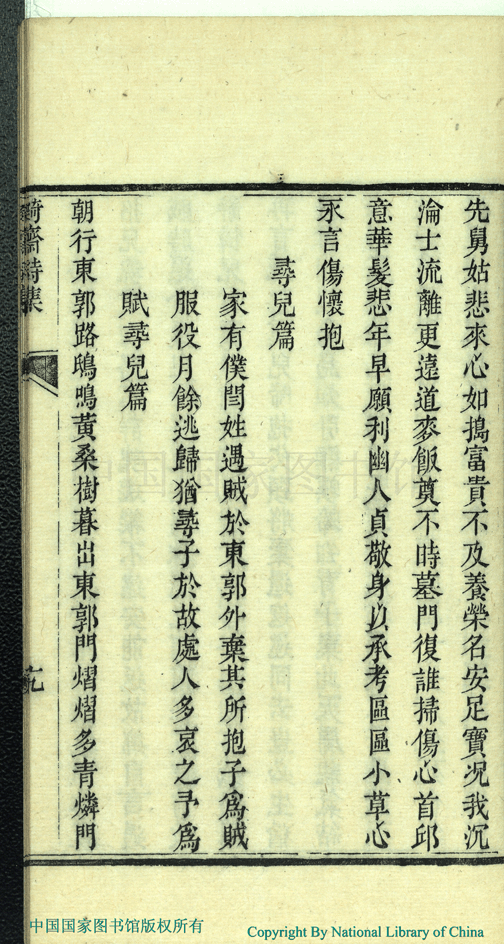 先舅姑悲來心如搗富貴不及養榮名安足寶况我沉
淪士流離更遠道麥飯奠不時墓門復誰掃傷心首邱
意華髮悲年早願利幽人貞敬身以承考區區小草心
永言傷懷抱
尋兒篇
家有僕閆姓遇賊於東郭外棄其所抱子爲賊
服役月餘逃歸猶尋子於故處人多哀之予爲
賦尋兒篇
朝行東郭路鴟鳴黃桑樹暮出東郭門熠熠多青燐門
齋詩集
九
中国国家图书馆
中国国家图书馆版权所有
Copyright By National Library of China